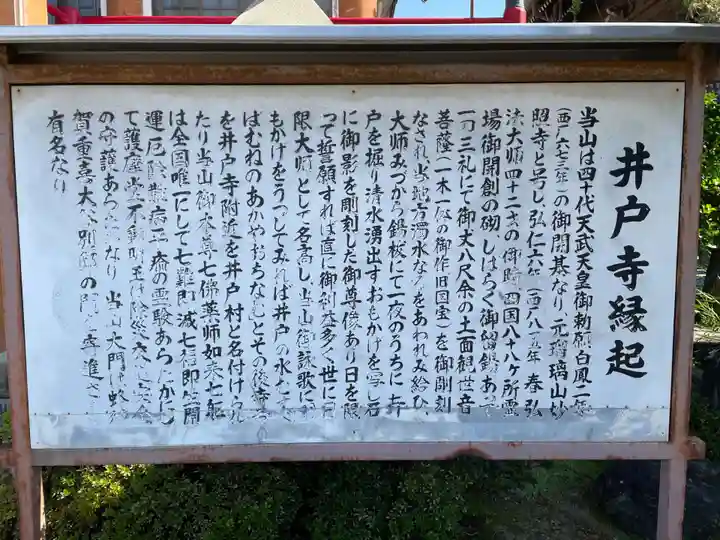 井戸寺縁起
当山は四十代天武天皇御勅願白鳳二年
(西广六七三年)の御開基なり、元瑠璃山妙
照寺と号し、弘仁六年(西广八一五年)春弘
法大師四十二才の御時、四国八十八ヶ所霊
場御開創の砌、しばらく御留錫あって
一刀三礼にて御丈八尺余の十一面観世音
菩薩(一木一体の御作旧国宝)を御彫刻
なされ、当地方濁水なるをあわれみ給ひ、
大師みづから錫杖にて一夜のうちに井
戸を掘り清水湧出すおもかげを写し石
に御影を彫刻した御尊像あり日を限
って誓願すれば直に御利益多く世に日
限大師として名高し、当山御詠歌に
もかげをうつしてみれば井戸の水むすべ
ばむねのあかやおちなむとその後
を井戸寺附近を井戸村と名付けられ
たり当山御本尊七佛薬師如来七躯
は全国唯一にして七難即滅七福即生開
運厄除
の霊験あらたかにし
て護摩堂不動明王は除災
の守護あらたかなり、当山大門は蜂須
賀重喜
大谷別邸の門
寄進
有名なり